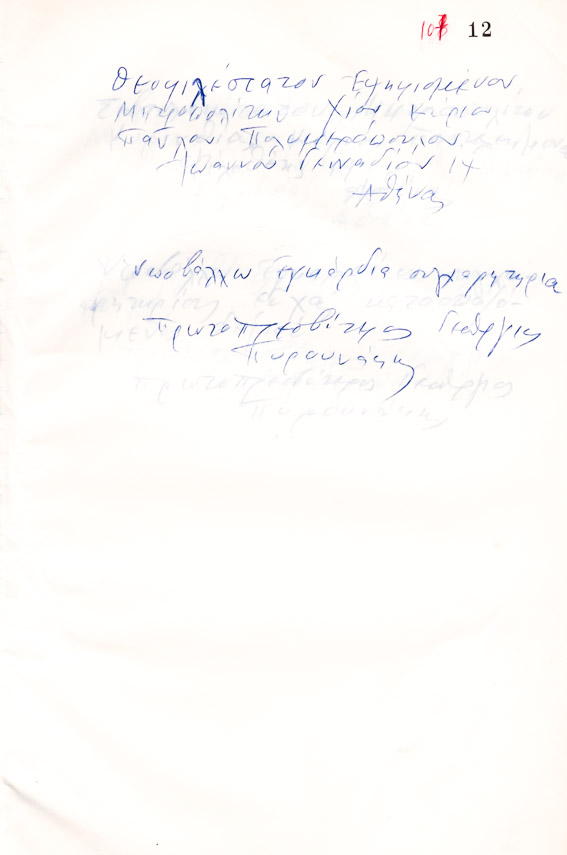 108 12
Θεοφιλέστατον Εψηφισμένον
Μητροπολίτην Χίου Κύριον
Παύλον
Ιωάννου Γενναδίου 14
Αθήνας
Υποβάλλω εγκάρδια συγχαρητήρια
Πρωτοπρεσβύτερος Γεώργιος
Πυρουνάκης